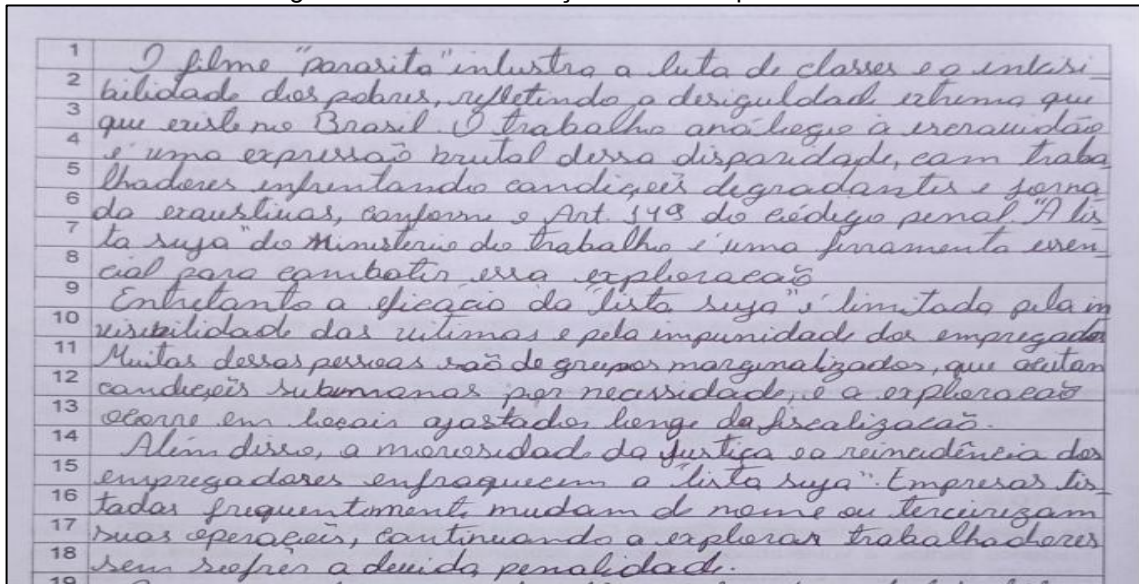 1 O filme "parasita" inlustra a luta de classes e a invisi_
2 bilidade dos pobres, refletindo a desiguldade extrema que
3 que existe no Brasil. O trabalho análogo à escravidão
4 é uma expressão brutal dessa disparidade, com traba
5 lhadores enfrentando condições degradantes e jorna
6 da exaustivas, conforme o Art. 149 do código penal. "A lis
7 ta suja" do Ministerio do trabalho é uma ferramenta essen_
8 cial para combater essa exploracaõ
9 Entretanto a eficacia da "lista suja" é limitada pela in
10 visibilidade das vitimas e pela impunidade dos empregador
11 Muitas dessas pessoas saõ de grupos marginalizados, que aceitam
12 condiçoẽs subumanas por necessidade, e a exploracaõ
13 ocorre em locais afastados longe da fiscalizacaõ.
14 Além disso, a morosidade da justiça e a reincidência dos
15 empregadores enfraquecem a "lista suja". Empresas lis_
16 tadas frequentimente mudam de nome ou terceirizam
17 suas operaçoẽs, continuando a explorar trabalhadores
18 sem sofrer a devida penalidade.
19